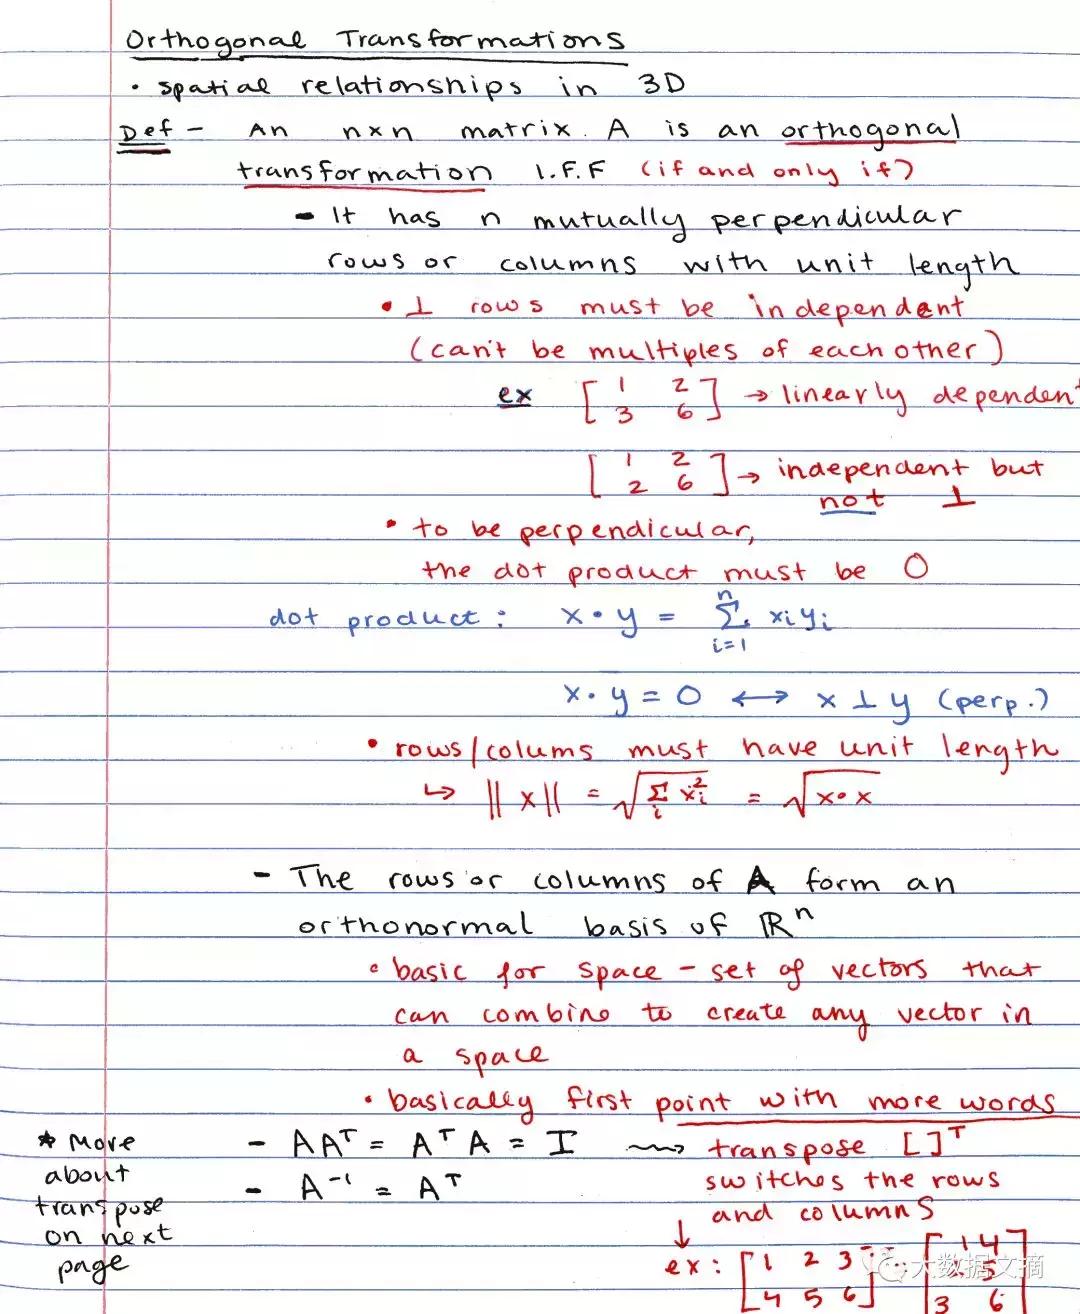 Orthogonal Transformations
• spatial relationships in 3D
Def - An n×n matrix A is an orthogonal
transformation I.F.F (if and only if)
- It has n mutually perpendicular
rows or columns with unit length
• ⊥ rows must be independent
(can't be multiples of each other)
ex [1 2 → linearly dependent
3 6]
[1 2 → independent but
2 6] not ⊥
• to be perpendicular,
the dot product must be 0
dot product: x • y = Σ_{i=1}^{n} x_i y_i
x • y = 0 ↔ x ⊥ y (perp.)
• rows/colums must have unit length
↳ ||x|| = √(Σ_i x_i²) = √(x•x)
- The rows or columns of A form an
orthonormal basis of ℝⁿ
• basic for space - set of vectors that
can combine to create any vector in
a space
• basically first point with more words
- AAᵀ = AᵀA = I ⇝ transpose [ ]ᵀ
- A⁻¹ = Aᵀ
switches the rows
and columns
* More
about
transpose
on next
page
↓
ex: [1 2 3
4 5 6]
[1 4
5
3 6]
大数据文摘